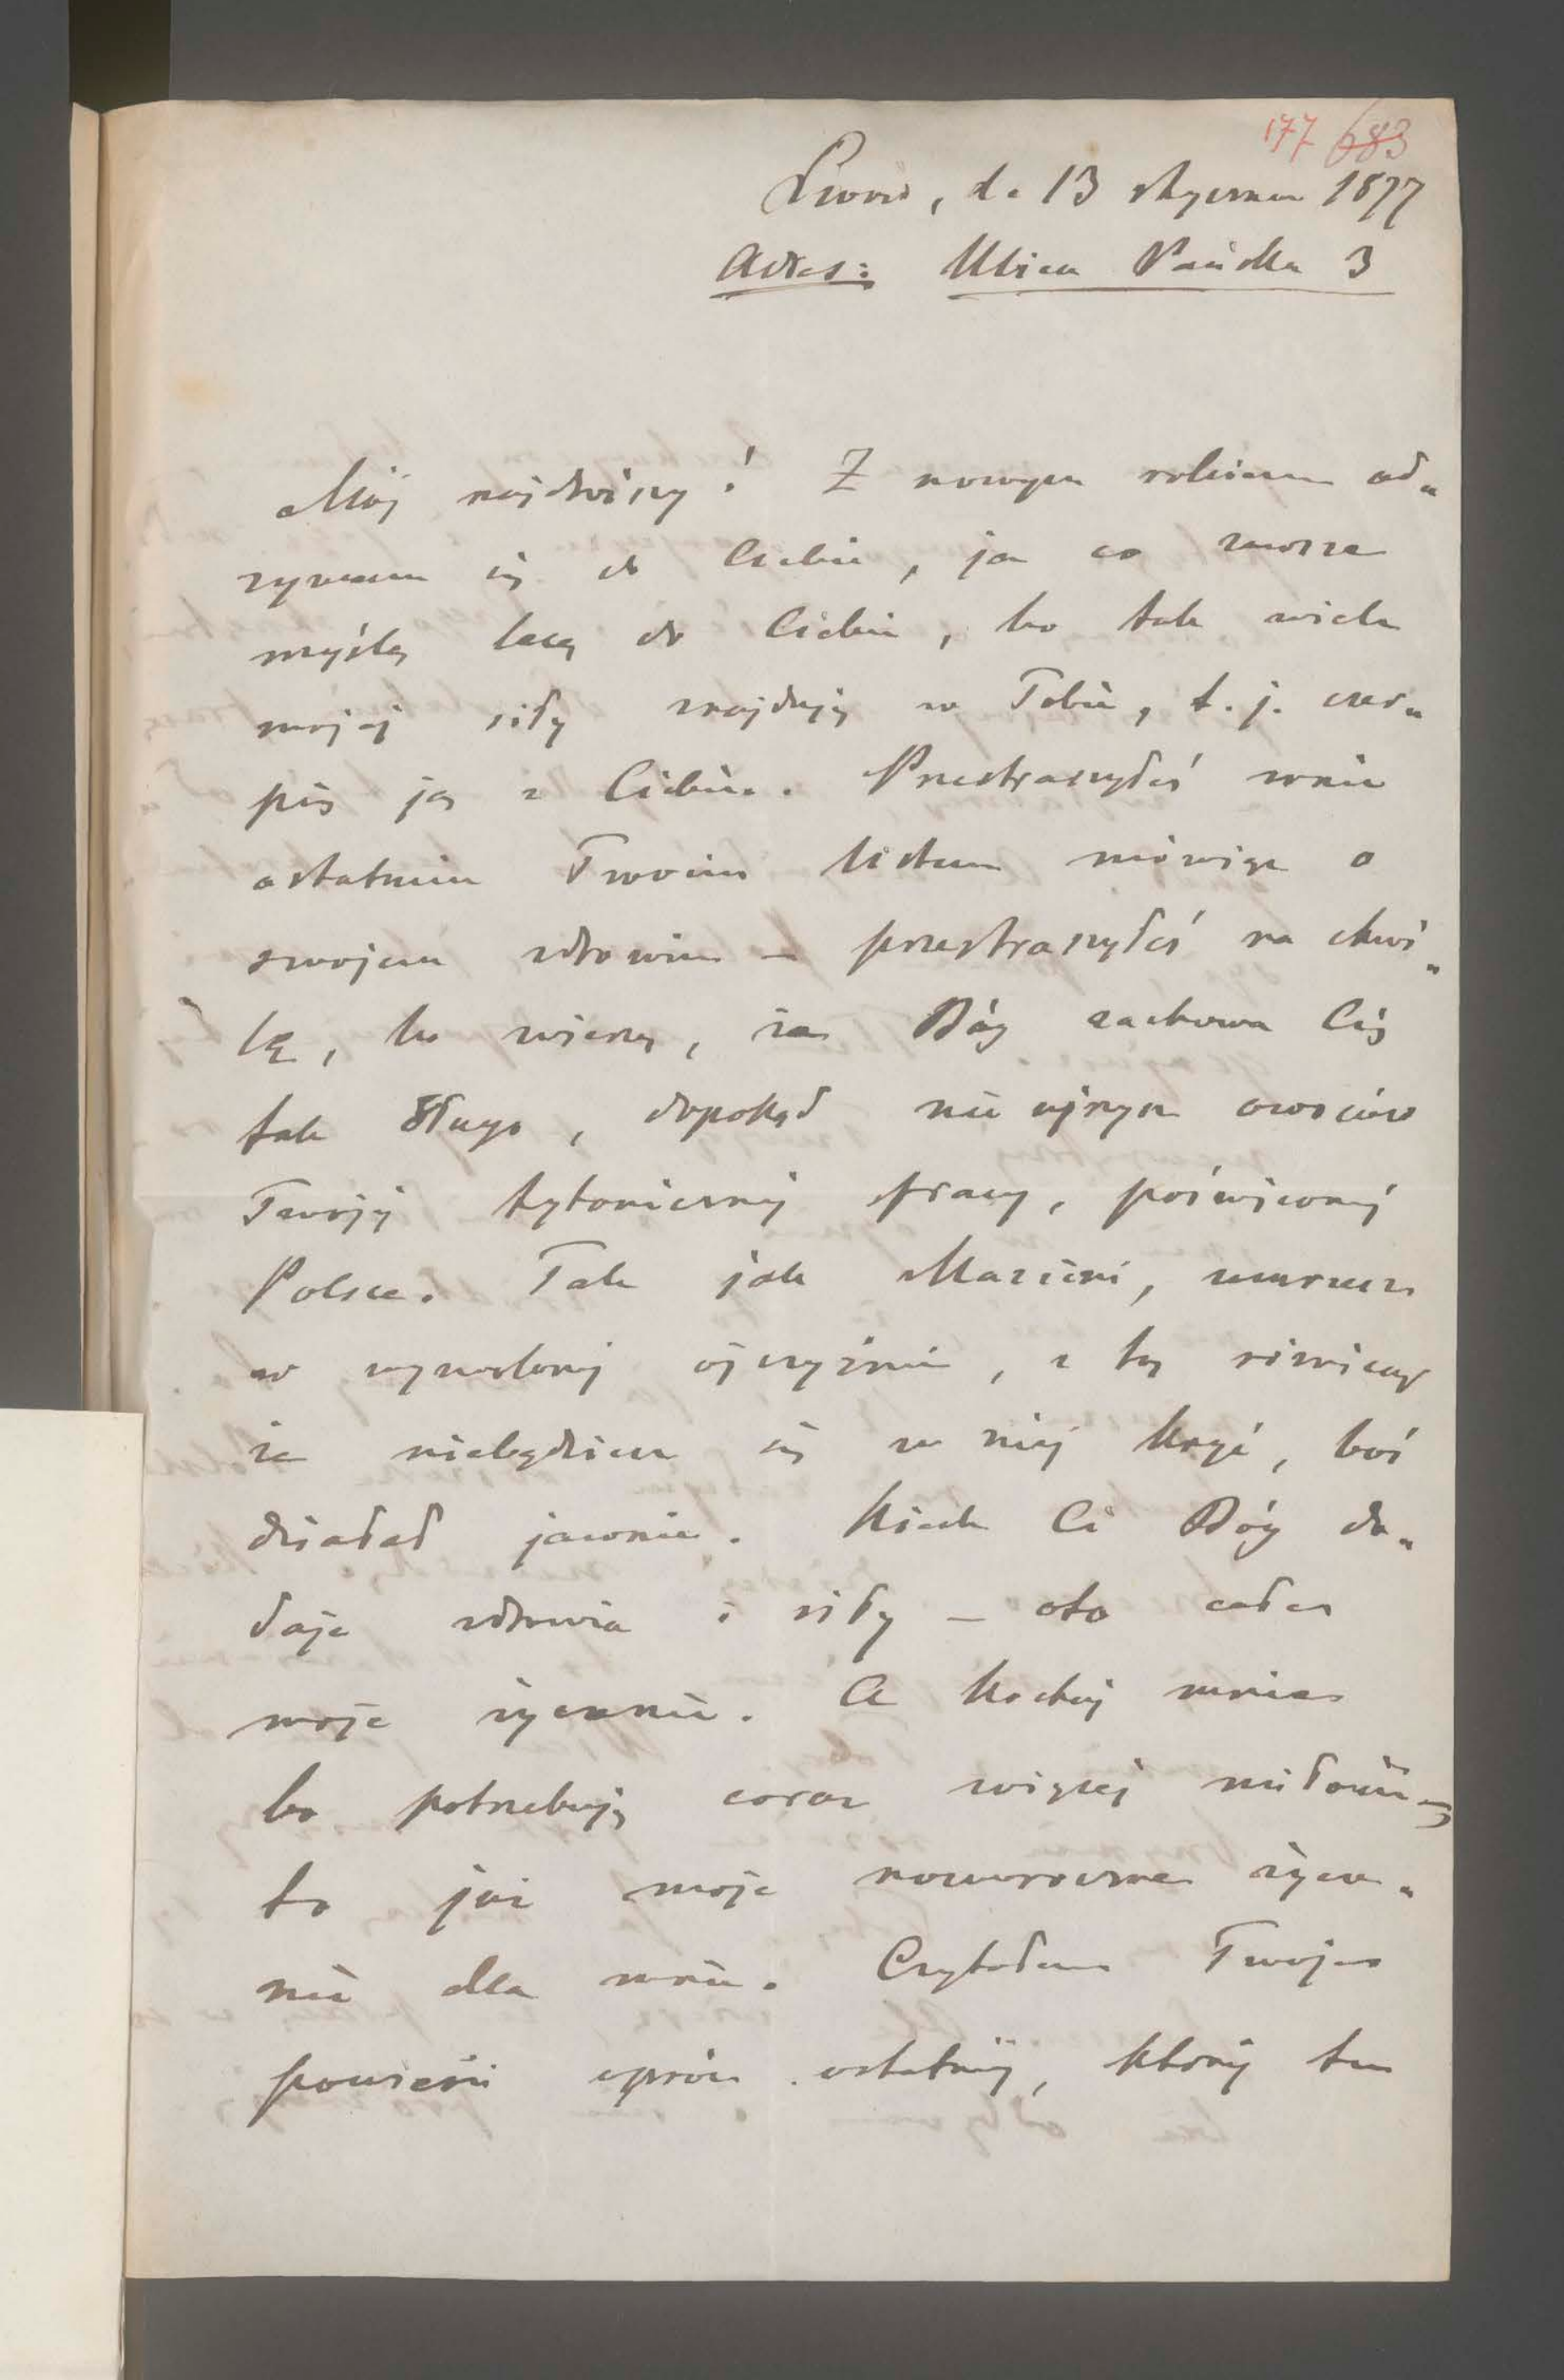 177 683
Lwów, d. 13 stycznia 1877
Adres: Ulica Pańska 3
Mój najdroższy! Z nowym rokiem od„
zywam się do Ciebie, ja co zawsze
myślą lecę do Ciebie, bo tak wiele
mojej siły znajduję w Tobie, t. j. czer„
pię ją z Ciebie. Przestraszyłeś mnie
ostatnim Twoim listem mówiąc o
swojem zdrowiu – przestraszyłeś na chwi„
lę, bo wierzę, że Bóg zachowa Cię
tak długo, dopokąd nie ujrzysz owoców
Twojéj tytanicznéj pracy, poświęconéj
Polsce. Tak jak Mazzini, umrzesz
w wyzwolonéj ojczyźnie, z tą różnicą
że niebędziesz się w niéj krył, boś
działał jawnie. Niech Ci Bóg do„
daje zdrowia i siły – oto całe
moje życzenie. A kochaj mnie
bo potrzebuję coraz więcéj miłości –
to już moje noworoczne życze„
nie dla mnie. Czytałem Twoje
powieści oprócz ostatniéj, któréj tu